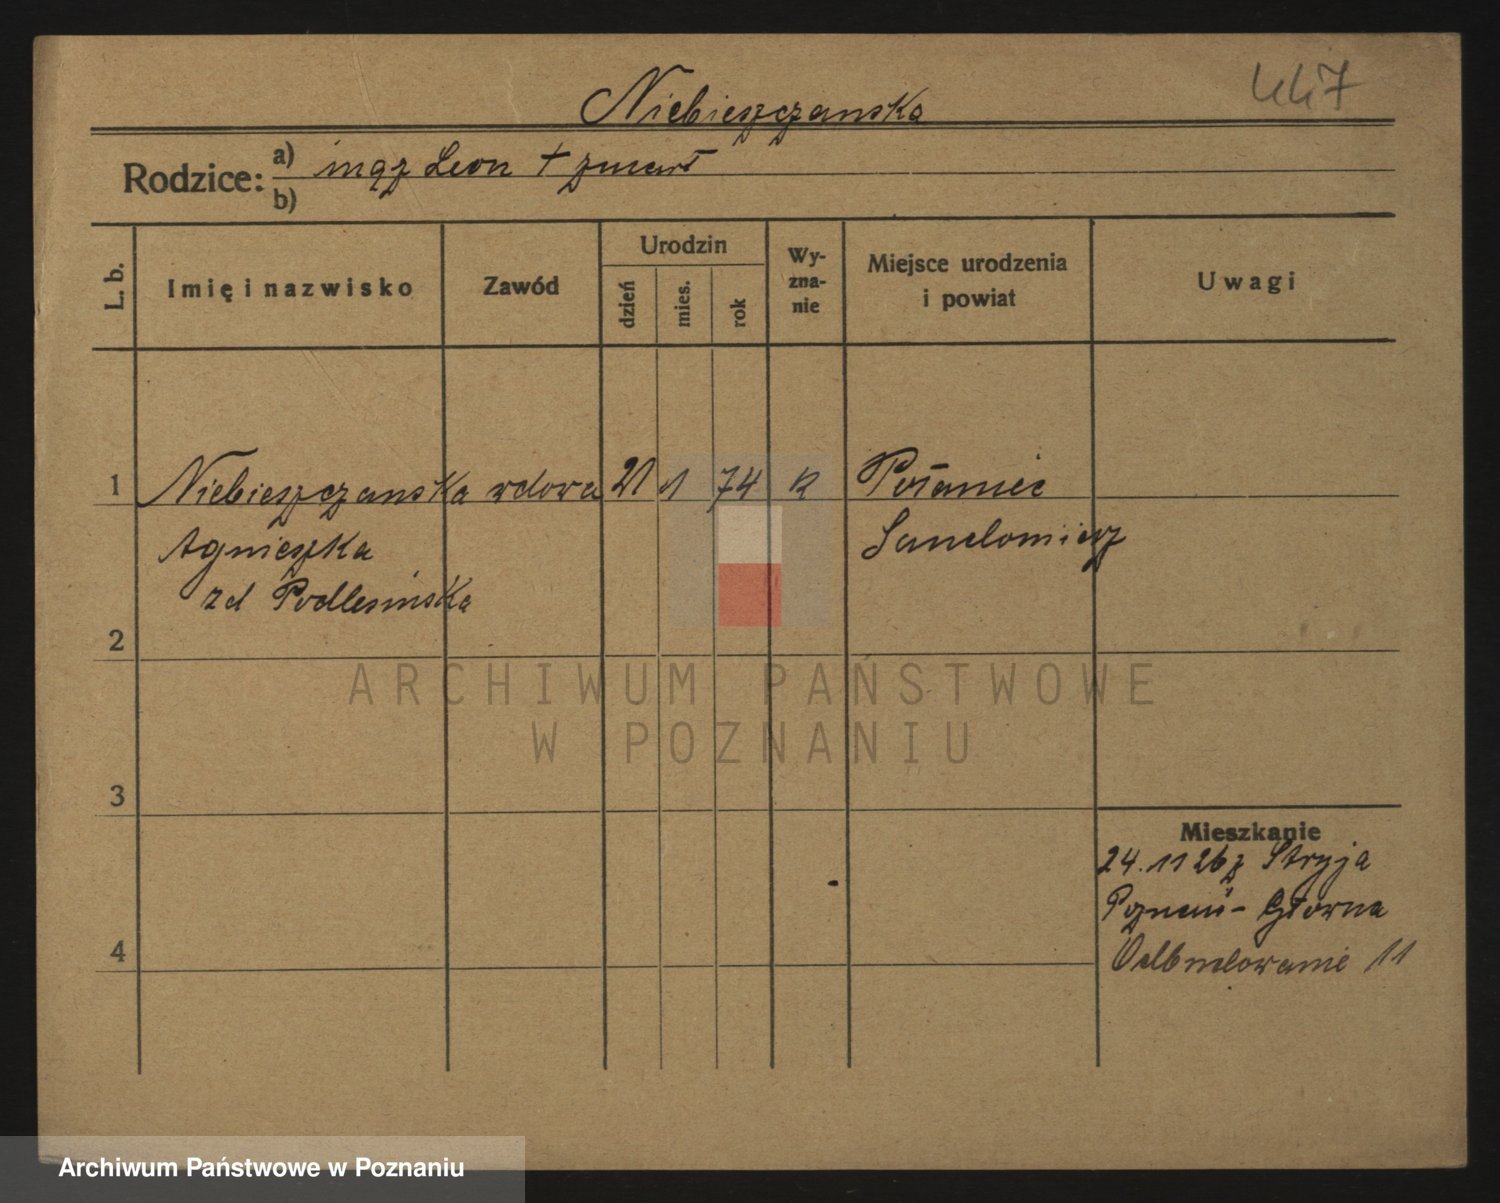 447
Niebieszczanska
Rodzice: a) mąż Leon + zmarł
b)
L. b.
Imię i nazwisko
Zawód
Urodzin
dzień
mies.
rok
Wy-
zna-
nie
Miejsce urodzenia
i powiat
Uwagi
1 Niebieszczanska wdowa 21 1 74 R Połanieć
Agnieszka Sandomierz
zd Podlesińska
2
3
4
Mieszkanie
24.11 26 z Stryja
Poznań - Główna
Odbudowanie 11
ARCHIWUM PAŃSTWOWE
W POZNANIU
Archiwum Państwowe w Poznaniu